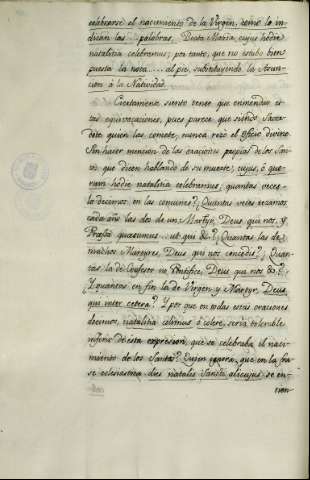 celebrarse el nacimiento de la Virgen, como lo in-
dican las palabras, Beata Maria, cujus hodie
natalitia celebramus; por tanto, que no estubo bien
puesta la nota..... al pie, substituyendo la Asun-
cion á la Natividad.
Ciertamente siento tener que enmendar es-
tas equivocaciones, pues parece que siendo Sacer-
dote quien las comete, nunca rezó el Oficio divino
Sin hacer mencion de las oraciones propias de los San-
tos que dicen hablando de su muerte, cujus, ó quo-
rum hodie natalitia celebramus, quantas veces
lo decimos en las comunes? ¿Quantas veces rezamos
cada año las dos de un Martyr, Deus qui nos, y
Præsta quæsumus... ut qui &c.? ¿Quantas las de
muchos Martyres Deus qui nos concedis? ¿Quan-
tas la de Confesor no Pontifice Deus qui nos &c.?
¿Y quantas en fin la de Virgen y Martyr Deus,
qui inter cetera? ¿Y por que en todas estas oraciones
decimos, natalitia colimus ó colere, seria tolerable
inferir de esta expresion, que se celebraba el naci-
miento de los Santos? Quien ignora, que en la fra-
se eclesiastica dies natalis Sancti alicujus se en-
tien-